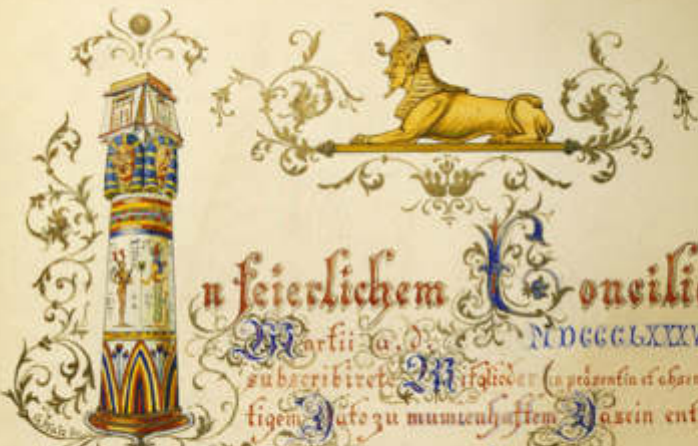 In feierlichem Concili
Martii a. d. MDCCCLXXXV
subscribirete Mitglieder in präsentia et absen
tigem Dato zu mumienhaftem Dasein ent